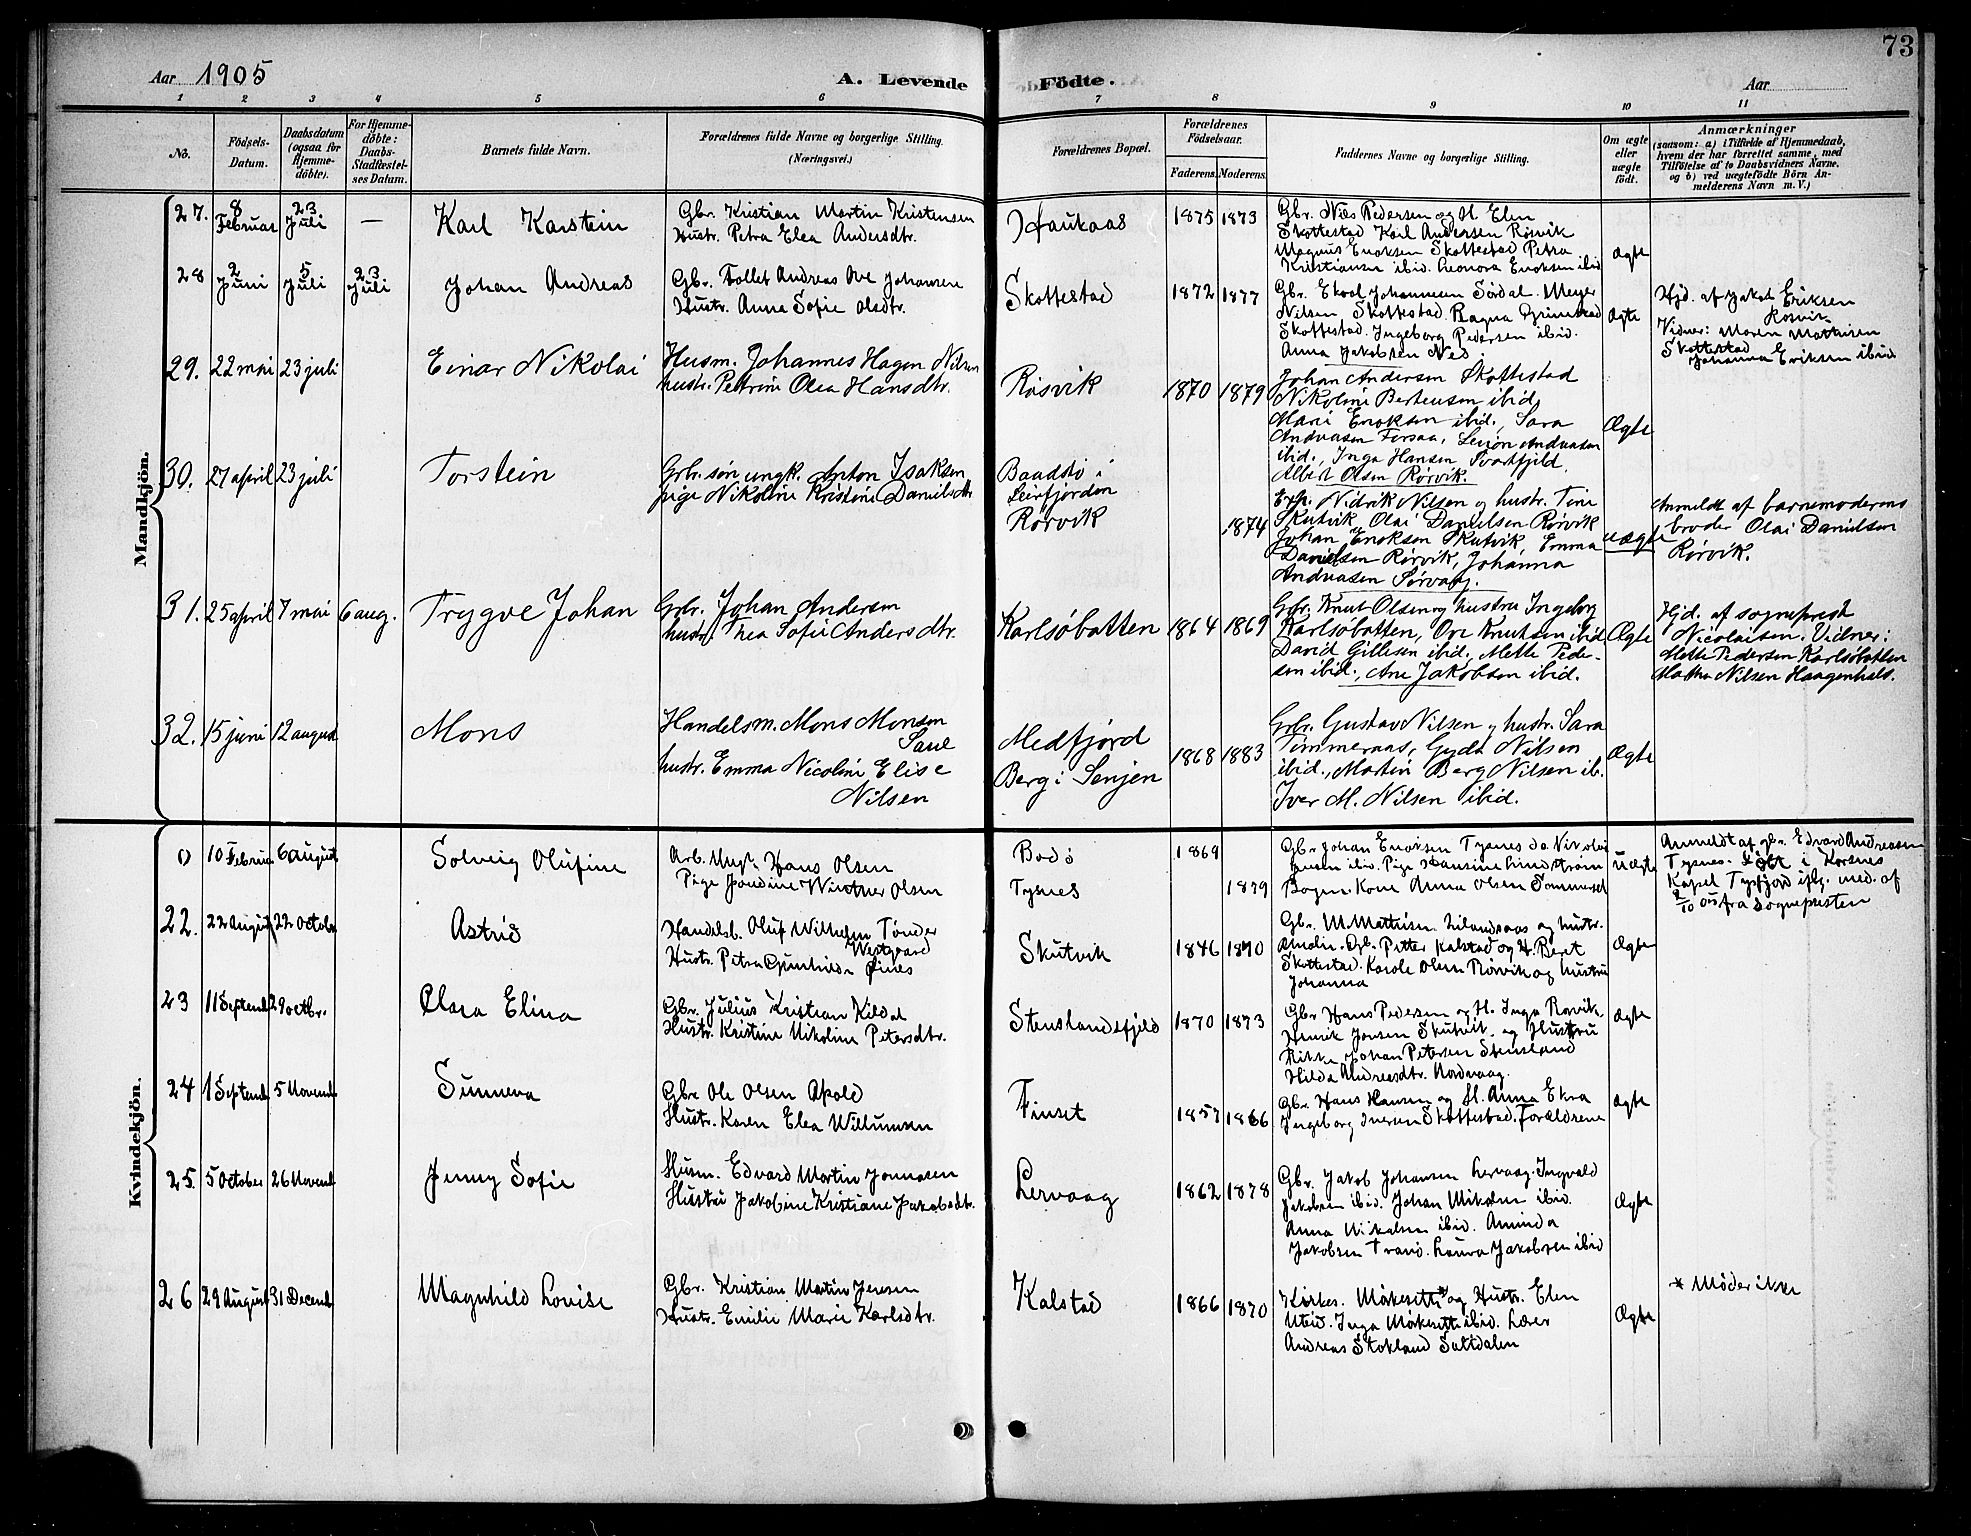 73
Aar 1905
A. Levende Födte.
Aar
1 2 3 4 5 6 7 8 9 10 11
No.
Födsels-Datum.
Daabsdatum (ogsaa for Hjemme-döbte).
For Hjemme-döbte: Daabs-Stadfæstel-ses Datum.
Barnets fulde Navn.
Forældrenes fulde Navne og borgerlige Stilling.
(Næringsvei.)
Forældrenes Bopæl.
Forældrenes Födselsaar.
Faderens. Moderens.
Faddernes Navne og borgerlig Stilling.
Om ægte eller uægte födt.
Anmærkninger
(saasom: a) i Tilfælde af Hjemmedaab,
hvem der har forrettet samme, med
Tilföielse af to Daabsvidners Navne.
og b) ved uægtefödte Börn An-
melderens Navn m. V.)
Mandkjön.
27. 8 Februar 23 Juli —
Karl Karstein
Gbr. Kristian Martin Kristensen
Hustr. Petra Elea Andersdtr.
Haukaas
1875 1873
Gbr. Nils Pedersen og H. Elen
Skottestad Karl Andersen Rösvik
Magnus Enoksen Skottestad Petra
Kristiansen ibid. Leonora Enoksen ibid
Ægte
28 2 Juni 5 Juli 23 Juli
Johan Andreas
Gbr. Tollef Andreas Ove Johansen
Hustr. Anna Sofie Olsdtr.
Skottestad
1872 1877
Gbr. Johannesen Sördal. Meyer
Nilsen Skottestad. Ragna Grimstad
Skottestad. Ingeborg Pedersen ibid.
Anna Jakobsen Nes
Ægte
Hjd. af Jakob Eriksen
Rösvik
Vidner: Maren Mathisen
Skottestad
Johanna Eriksen ibid
29. 22 mai 23 juli
Einar Nikolai
Husm. Johannes Hagen Nilsen
hustr. Petrine Olea Hansdtr.
Rösvik
1870 1879
Johan Andersen Skottestad
Nikoline Bertensen ibid,
Marie Enoksen ibid., Sara
Andreasen Forsaa, Andreasen
ibid., Inga Hansen Svartfjeld,
Albert Olsen Rörvik.
Ægte
30. 27 april 23 juli
Torstein
Gbr. sön ungk. Anton Isaksen
pige Nikoline Kristine Danielsdtr
i
Leirfjorden
Rörvik
1874
Nidrik Nilsen og hustr. Tine
Skutvik, Olai Danielsen Rörvik
Johan Enoksen Skutvik, Emma
Danielsen Rörvik, Johanna
Andreasen Sörvaag.
uægte
Anmeldt af barnemoderens
broder Olai Danielsen
Rörvik.
31. 25 april 7 mai 6 aug.
Trygve Johan
Gbr. Johan Andersen
hustr. Thea Sofie Andersdtr.
Karlsöbotten
1864 1869
Gbr. Knut Olsen og hustru Ingeborg
Karlsöbotten, Ove Knutsen ibid
David Gillesen ibid., Mette Peder-
sen ibid., Ane Jakobsen ibid.
Ægte
Hjd. af sogneprest
Nicolaisen. Vidner:
Mette Pedersen Karlsöbotten
Martha Nilsen Haagenhals.
32. 15 juni 12 august
Mons
Handelsm. Mons Monsen
hustr. Emma Nicoline Elise
Nilsen
Medfjord
Berg i Senjen
1868 1883
Gbr. Gustav Nilsen og hustr. Sara
Timmeraas, Gyda Nilsen
ibid., Martin Berg Nilsen ib.
Iver M. Nilsen ibid.
Ægte
Kvindekjön.
0 10 Februar 6 august
Solveig Olufine
Arb. Ungk. Hans Olsen
Pige Olsen
Bodö
Tysnes
1869
1879
Gbr Johan Enoksen Tysnes do Nikolai
Jensen ibid. Pige Hansine Lindström
Bogen. Kone Anna Olsen Sommerset
uægte
Anmeldt af gbr. Edvard Andreassen
Tysnes. Döbt i Korsnes
Kapel Tysfjord iflg. med. af
2/10 05 fra Sognepresten
22. 22 August 22 October
Astrid
Handelsb. Oluf Wilhelm Tönder
Westgaard
Hustr. Petra Gunhilda
Skutvik
1846 1870
Gbr. M. Mathisen og hustr.
Gbr. Petter Kalstad og H. Beret
Skottestad. Karole Olsen Rörvik og hustru
Johanna
Ægte
23 11 Septemb 29 octbr.
Clara Elina
Gbr. Julius Kristian Kildal
Hustr. Kristine Nikoline Petersdtr.
Stenslandsfjeld
1870 1873
Gbr Hans Pedersen og H. Inga Rörvik.
Henrik Jensen Skutvik og Hustru
Rikke, Johan Petersen Stensland
Hilda Andreasdtr. Nordvaag.
Ægte
24 1 Septemb 5 Novemb
Sunneva
Gbr Ole Olsen Apold
Hustr. Karen Elea Willumsen
Finset
1857 1866
Gbr. Hans Hansen og H. Anna Ekra
Ingeborg Iversen Skottestad. Forældrene
Ægte
25. 5 October 26 Novemb
Jenny Sofie
Husm. Edvard Martin Jonnasen
Hustru Jakobine Kristiane Jakobsdtr.
Lervaag
1862 1878
Gbr. Jakob Johansen Lervaag. Ingvald
Jakobsen ibid. Johan Nikolai ibid.
Anna Nikolaisen ibid. Aminda
Jakobsen Tranö. Laura Jakobsen ibid
Ægte
26 29 August 31 Decemb
Magnhild Lovise
Gbr. Kristian Martin Jensen
Hustr. Emilie Marie Karlsdtr.
Kalstad
1866 1870
Kirkes. Mörkesett* og Hustr. Elen
Uteid. Inga Mörkesett ibid. Lærer
Andreas Stokland Saltdalen
Ægte
* Möder ikke